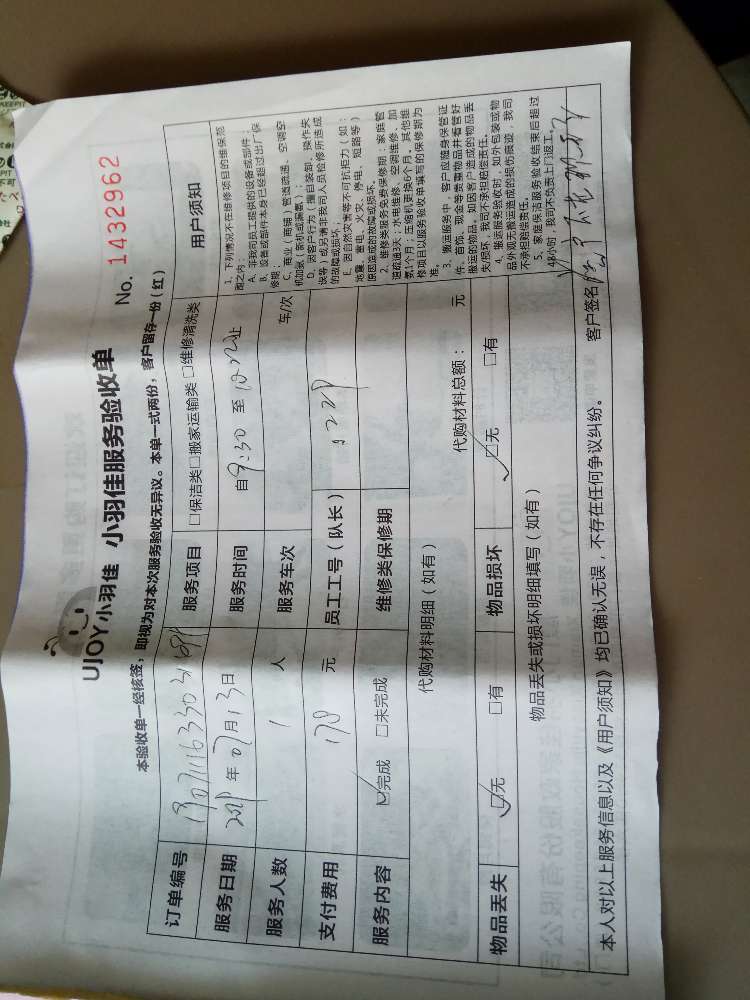 UJOY小羽佳 小羽佳服务验收单
No. 1432962
本验收单一经核签，即视为对本次服务验收无异议。本单一式两份，客户留存一份（红）
订单编号
服务项目 □保洁类□搬家运输类 □维修清洗类
服务日期 2019年07月13日
服务时间 自9:30至10:22止
服务人数 1 人
服务车次 车/次
支付费用 178 元
员工工号（队长）
服务内容 ☑完成 □未完成
维修类保修期
代购材料明细（如有） 代购材料总额： 元
物品丢失 ☑无 □有
物品损坏 ☑无 □有
物品丢失或损坏明细填写（如有）
用户须知
1、下列情况不在维修项目的维保范
围之内：
A、非我司员工提供的设备或部件；
B、设备或部件本身已经超过出厂保
修期；
C、商业（商铺）管道疏通、空调空
机加氨（亲机或漏氨）；
D、因客户行为（擅自装卸、操作失
误等）或另请非我司人员检修所造成
的故障或损坏；
E、因自然灾害等不可抗拒力（如：
地震、雷电、火灾、停电、短路等）
原因造成的故障或损坏。
2、维修类服务免费保修期：家庭管
道疏通3天；水电维修、空调维修、加
氨1个月；压缩机更换6个月。其他维
修项目以服务验收单填写的保修期为
准。
3、搬运服务中，客户应随身保管证
件、首饰、现金等贵重物品并看管好
搬运的物品，如因客户造成的物品丢
失/损坏，我司不承担赔偿责任。
4、搬运服务验收时，如外包装或物
品外观无搬运造成的损伤痕迹，我司
不承担赔偿责任。
5、家庭保洁服务验收结束后超过
48小时，我司不负责上门返工。
本人对以上服务信息以及《用户须知》均已确认无误，不存在任何争议纠纷。 客户签名